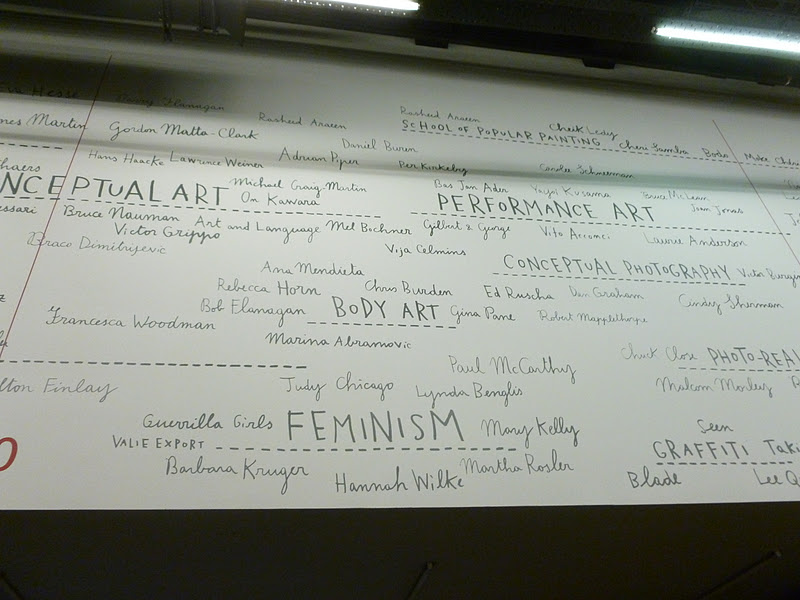 Eva Hesse
Barry Flanagan
Rasheed Araeen
Rasheed Araeen
Agnes Martin
Gordon Matta-Clark
SCHOOL OF POPULAR PAINTING
Cheik Ledy
Cheri Samba
Bodo
Daniel Buren
Hans Haacke
Lawrence Weiner
Adrian Piper
Per Kirkeby
Carolee Schneemann
thaers
NCEPTUAL ART
Michael Craig-Martin
On Kawara
Bas Jan Ader
Yayoi Kusama
Bruce McLean
PERFORMANCE ART
Joan Jonas
essari
Bruce Nauman
Art and Language
Mel Bochner
Gilbert & George
Vito Acconci
Laurie Anderson
Victor Grippo
Braco Dimitrijevic
Vija Celmins
CONCEPTUAL PHOTOGRAPHY
Victor Burgin
Ana Mendieta
Rebecca Horn
Chris Burden
Ed Ruscha
Dan Graham
Cindy Sherman
Bob Flanagan
BODY ART
Gina Pane
Robert Mapplethorpe
Francesca Woodman
Marina Abramovic
Chuck Close
PHOTO-REA
Paul McCarthy
lton Finlay
Judy Chicago
Lynda Benglis
Malcom Morley
Guerrilla Girls
FEMINISM
Mary Kelly
Seen
VALIE EXPORT
GRAFFITI
Taki
Barbara Kruger
Hannah Wilke
Martha Rosler
Blade
Lee Q